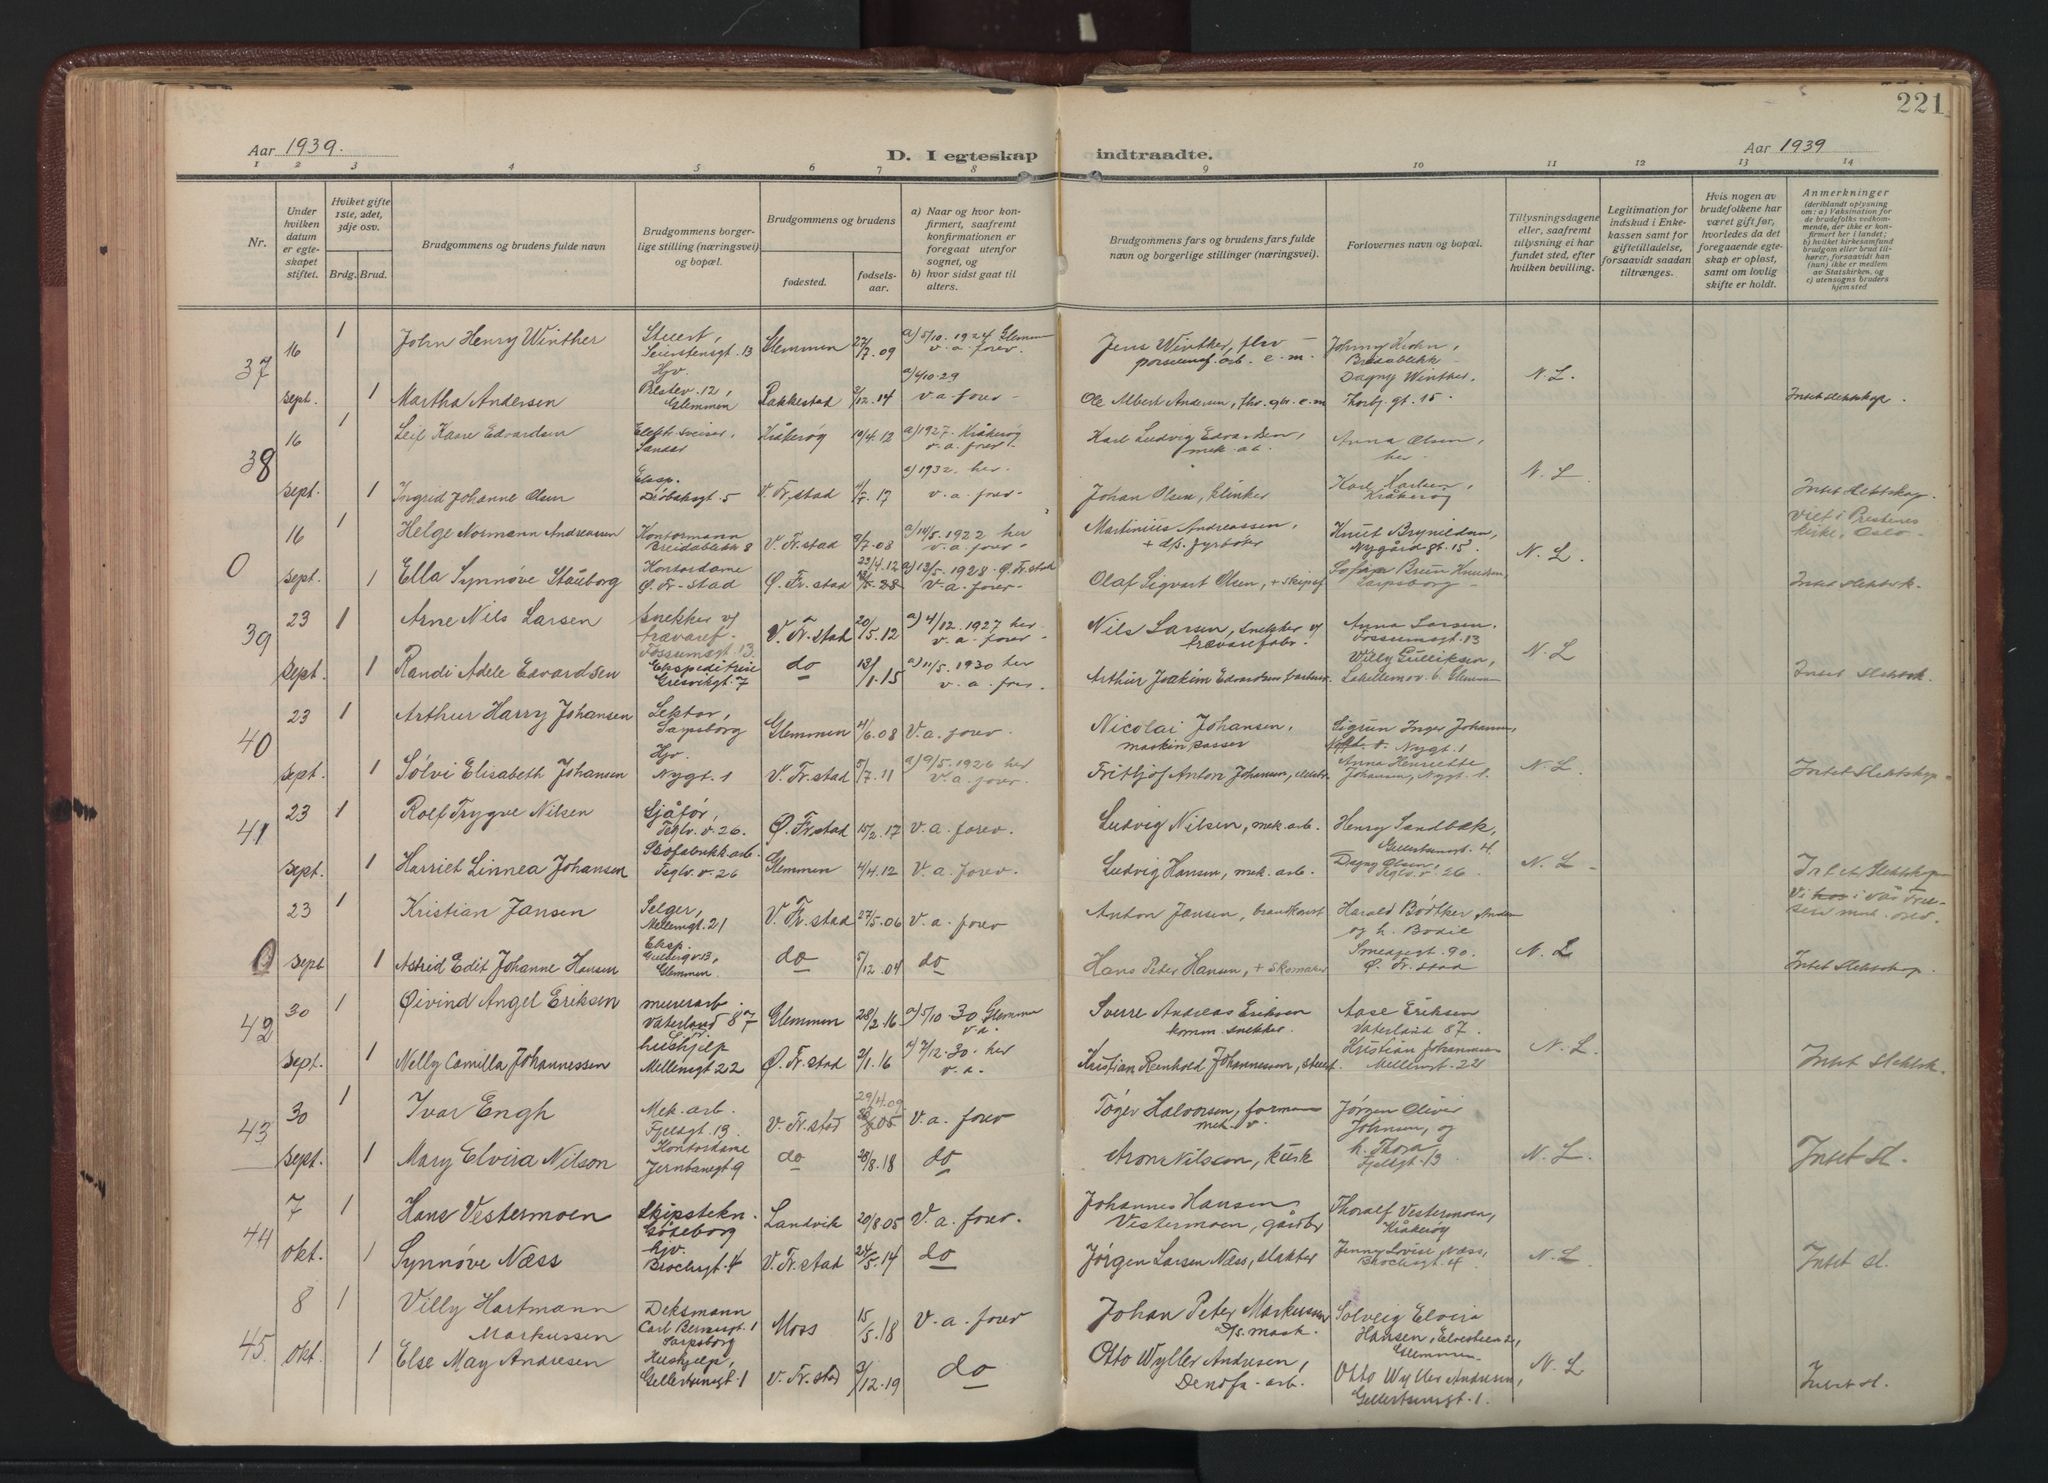 221
Aar 1939.
D. I egteskap
indtraadte.
Aar 1939
1 2 3 4 5 6 7 8 9 10 11 12 13 14
Nr.
Under hvilken datum er egteskapet stiftet.
Hvilket gifte 1ste, 2det, 3dje osv.
Brdg. Brud.
Brudgommens og brudens fulde navn
Brudgommens borgerlige stilling (næringsvei) og bopæl.
Brudgommens og brudens
fødested.
fødselsaar.
a) Naar og hvor konfirmert, saafremt konfirmationen er foregaat utenfor sognet, og
b) hvor sidst gaat til alters.
Brudgommens fars og brudens fars fulde navn og borgerlige stillinger (næringsvei).
Forlovernes navn og bopæl.
Tillysningsdagene eller, saafremt tillysning ei har fundet sted, efter hvilken bevilling.
Legitimation for indskud i Enkekassen samt for giftetilladelse, forsaavidt saadan tiltrænges.
Hvis nogen av brudefolkene har været gift før, hvorledes da det foregaaende egteskap er opløst, samt om lovlig skifte er holdt.
Anmerkninger (deriblandt oplysning om: a) Vaksination for de brudefolks vedkommende, der ikke er konfirmert her i landet; b) hvilket kirkesamfund brudgom eller brud tilhører, forsaavidt han (hun) ikke er medlem av Statskirken, og c) utensogns bruders hjemsted
37 16 sept. 1 John Henry Winther Stuert, Seierstensgt. 13 Glemmen 27/7.09 a) 5/10.1924 Glemmen v. a. forev. Jens Winther, porselensf. arb. e. m. Johnny Krohn, Bredablikk
1 Martha Andersen Hjv. Prestev. 12, Glemmen Rakkestad 3/12.14 a) 6/10-29 v. a. forev. Ole Albert Andersen, e. m Dagny Winther, Thorbj. gt. 15. N. L. Intet slektskap
38 16 sept. 1 Leif Kaare Edvardsen Elektr. sveiser, Sandar Kråkerøy 10/4.12 a) 1927. Kråkerøy v. a. forev. Karl Ludvig Edvardsen, mek. arb. Anna Olsen, her
1 Ingrid Johanne Olsen Eksp. Drøbakgt. 5 V. Fr.stad 1/7.17 a) 1932 her. v. a. forev. Johan Olsen, klinker Karl Karlsen, Kråkerøy N. L Intet Slektskap.
0 16 sept. 1 Helge Normann Andreassen Kontormann Breidablikk 8 V. Fr.stad 8/7.08 a) 14/5.1922 her v. a. forev. Martinius Andreassen, + d/s. fyrbøter Knut Brynildsen, Nygårdgt. 15 viet i Prestenes kirke, Oslo
1 Ella Synnøve Stauborg Kontordame Ø. Fr-stad Ø. Fr.stad 23/4.12 a) 13/5.1928. Ø. Fr.stad v. a. forev. Olaf Sigvart Olsen, + skipsf Sofian Brun Knudsen, Sarpsborg N. L Intet slektsk.
39 23 sept. 1 Arne Nils Larsen snekker v/ trævaref. Fossumsgt. 13. V. Fr.stad 20/5.12 a) 4/12.1927 her. v. a. forev. Nils Larsen, snekker v/ trævarefabr. Anna Larsen. Fossumsgt. 13
1 Randi Adele Edvardsen Ekspeditrise Gresvikgt. 7 do 13/1.15 a) 11/5.1930 her v. a. forev. Arthur Joakim Edvardsen, Willy Gulliksen, Lakkemov. 6. Glemmen N. L Intet slektsk.
40 23 sept. 1 Arthur Harry Johansen Lektor, Sarpsborg Glemmen 4/6.08 V. a. forev. Nicolai Johansen, maskinpasser Sigrun Inger Johansen, Nygt. 1
1 Sølvi Elisabeth Johansen Hjv. Nygt. 1 V. Fr.stad 5/7.11 a) 9/5.1926 her v. a. forev. Fritjof Anton Johansen, Anna Henriette Johansen, Nygt. 1. N. L. Intet Slektskap
41 23 sept. 1 Rolf Trygve Nilsen Sjåfør, Teglv. v. 26. Ø. Fr.stad 15/2.17 V. a. forev. Ludvig Nilsen, mek. arb. Henry Sandbæk, Gellertsensgt. 4.
1 Harriet Linnea Johansen Skofabrikkarb. Teglv. v. 26 Glemmen 4/4.12 V. a. forev. Ludvig Hansen, mek. arb. Dagny Olsen, Teglv. v. 26 N. L Intet Slektskap
0 23 sept 1 Kristian Jansen Selger, Mellemgt. 21 V. Fr.stad 27/5.06 V. a. forev Anton Jansen, Harald Børtker Andersen og h. Bodil
1 Astrid Edit Johanne Hansen Eksp. Gulbergv. 13, Glemmen. do 5/12.04 do Hans Peter Hansen, + skomaker Smedjegt. 90. Ø. Fr. stad N. L Intet slektskap.
42 30 sept. 1 Øivind Angel Eriksen murerarb. Vaterland 87 Glemmen 28/2.16 a) 5/10-30 Glemmen v. a. Sverre Andreas Eriksen komm. snekker. Aase Eriksen Vaterland 87.
1 Nelly Camilla Johannessen hushjelp Mellemgt 22 Ø. Fr.stad 2/1.16 7/12.30. her v. a. Kristian Reinhold Johannessen, stuert. Kristian Johannessen Mellemgt. 22 N. L. Intet Slektsk.
43 30 sept. 1 Ivar Engh Mek. arb. Fjellgt. 13. V. Fr.stad 29/4.09 V. a. forev Tøger Halvorsen, formann mek. v. Jørgen Oliver Johnsen, og
1 Mary Elvira Nilson Kontordame Jernbanegt 9 do 28/8.18 do Arone Nilsson, kusk h. Thora Fjellgt. 13 N. L. Intet sl.
44 7 okt. 1 Hans Vestermoen Skipstekn. Gøteborg Landvik 20/8.05 V. a. forev. Johannes Hansen Vestermoen, gårdbr Thoralf Vestermoen, Kråkerøy
1 Synnøve Næss hjv. Brochsgt. 4 V. Fr.stad 24/5.14 do Jørgen Larsen Næss, slakter Jenny Lovise Næss, Brochsgt. 4 N. L Intet sl.
45. 8 okt. 1 Villy Hartmann Markussen Deksmann Carl Bernersgt. 1 Sarpsborg Moss 15/5.18 V. a. forev Johan Peter Markussen D/s. mask. Solveig Elvira Hansen, Glemmen
1 Else May Andresen Hushjelp, Gellertsensgt. 1 V. Fr.stad 3/12.19 do Otto Wyller Andresen, Denofa-arb. Otto Wyller Andresen, Gellertsensgt. 1. N. L Intet sl.